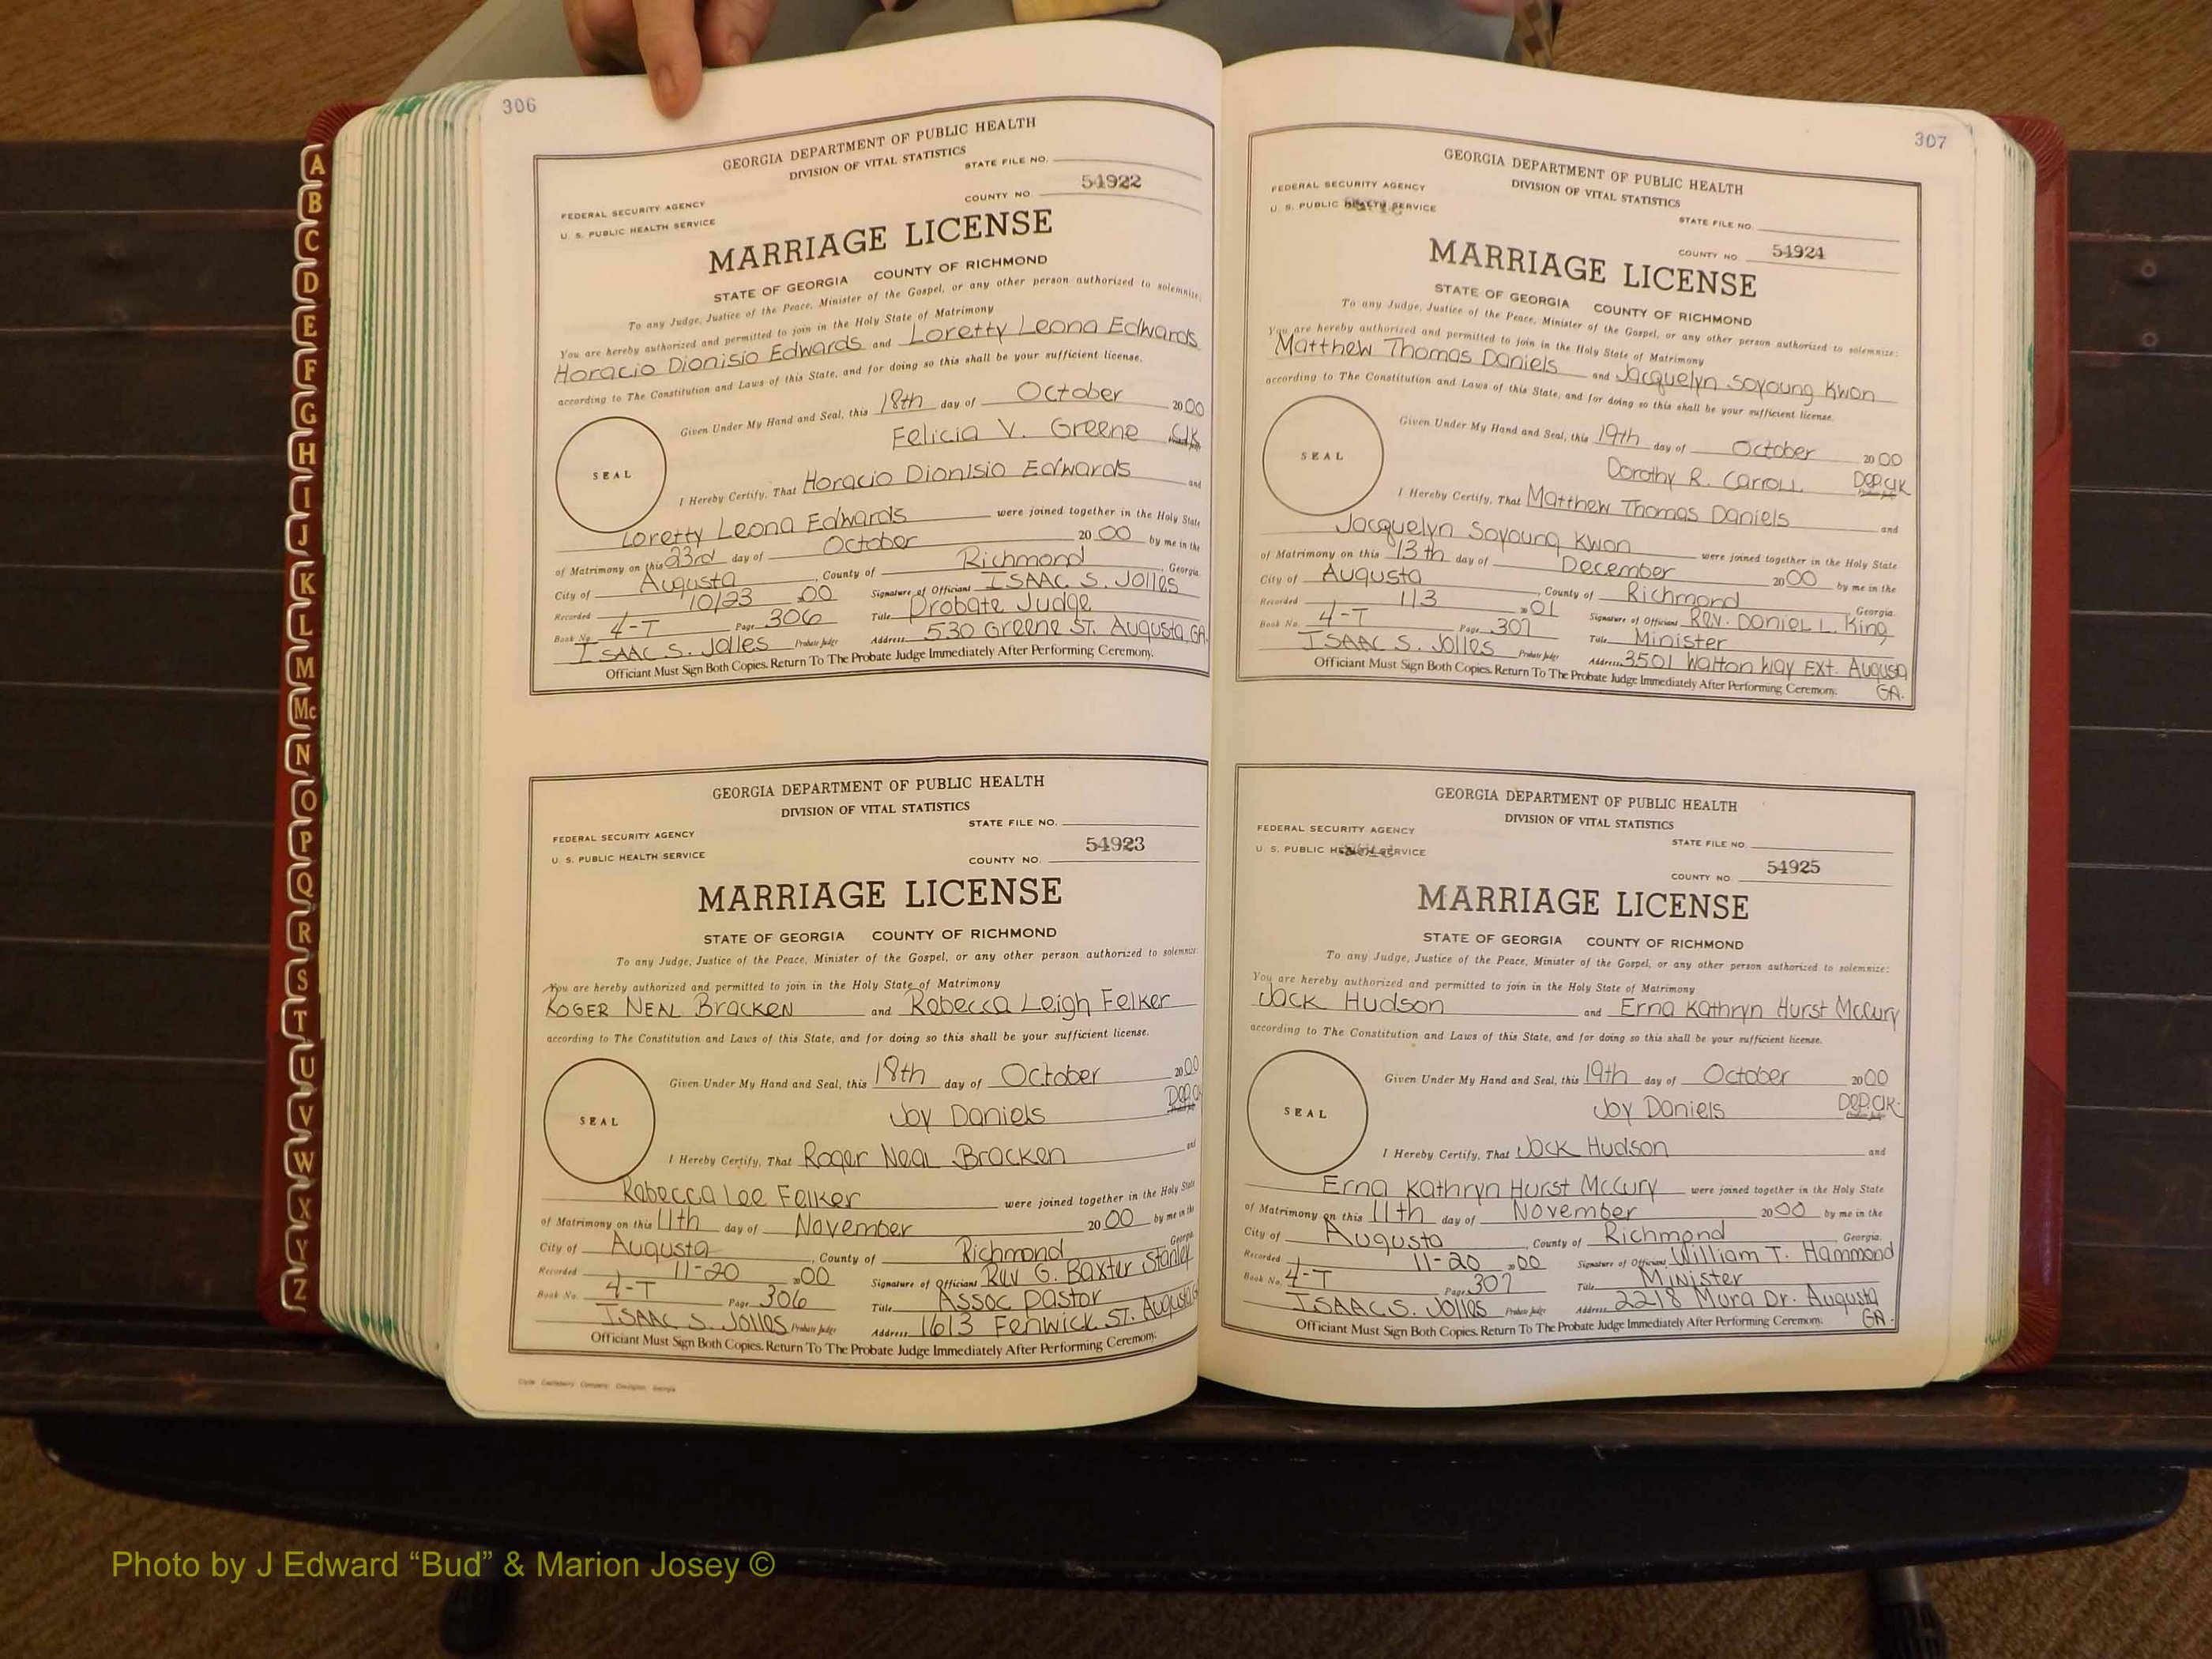 306
GEORGIA DEPARTMENT OF PUBLIC HEALTH
DIVISION OF VITAL STATISTICS
STATE FILE NO.
54922
COUNTY NO.
FEDERAL SECURITY AGENCY
U. S. PUBLIC HEALTH SERVICE
MARRIAGE LICENSE
STATE OF GEORGIA COUNTY OF RICHMOND
To any Judge, Justice of the Peace, Minister of the Gospel, or any other person authorized to solemnize:
You are hereby authorized and permitted to join in the Holy State of Matrimony
Horacio Dionisio Edwards and Loretty Leona Edwards
according to The Constitution and Laws of this State, and for doing so this shall be your sufficient license.
Given Under My Hand and Seal, this 18th day of October 2000
Felicia V. Greene Clk
SEAL
I Hereby Certify, That Horacio Dionisio Edwards and
Loretty Leona Edwards were joined together in the Holy State
of Matrimony on this 23rd day of October 20 00 by me in the
City of Augusta, County of Richmond Georgia
Recorded 10/23 00 Signature of Officiant ISAAC S. Jolles
Book No. 4-T Page 306 Title Probate Judge
ISAAC S. Jolles Probate Judge Address 530 Greene ST. Augusta, GA.
Officiant Must Sign Both Copies. Return To The Probate Judge Immediately After Performing Ceremony.
GEORGIA DEPARTMENT OF PUBLIC HEALTH
DIVISION OF VITAL STATISTICS
STATE FILE NO.
FEDERAL SECURITY AGENCY
54923
U. S. PUBLIC HEALTH SERVICE
COUNTY NO.
MARRIAGE LICENSE
STATE OF GEORGIA COUNTY OF RICHMOND
To any Judge, Justice of the Peace, Minister of the Gospel, or any other person authorized to solemnize:
You are hereby authorized and permitted to join in the Holy State of Matrimony
ROGER NEAL Bracken and Rebecca Leigh Felker
according to The Constitution and Laws of this State, and for doing so this shall be your sufficient license.
Given Under My Hand and Seal, this 18th day of October 2000
Joy Daniels
SEAL
I Hereby Certify, That Roger Neal Bracken and
Rebecca Lee Felker were joined together in the Holy State
of Matrimony on this 11th day of November 20 00 by me in the
City of Augusta, County of Richmond Georgia
Recorded 11-20 00 Signature of Officiant Rev G. Baxter Stanley
Book No. 4-T Page 306 Title Assoc pastor
ISAAC S. Jolles Probate Judge Address 1613 Fenwick ST. Augusta
Officiant Must Sign Both Copies. Return To The Probate Judge Immediately After Performing Ceremony.
307
GEORGIA DEPARTMENT OF PUBLIC HEALTH
DIVISION OF VITAL STATISTICS
FEDERAL SECURITY AGENCY
U. S. PUBLIC HEALTH SERVICE
STATE FILE NO.
COUNTY NO. 54924
MARRIAGE LICENSE
STATE OF GEORGIA COUNTY OF RICHMOND
To any Judge, Justice of the Peace, Minister of the Gospel, or any other person authorized to solemnize:
You are hereby authorized and permitted to join in the Holy State of Matrimony
Matthew Thomas Daniels and Jacquelyn Soyoung Kwon
according to The Constitution and Laws of this State, and for doing so this shall be your sufficient license.
Given Under My Hand and Seal, this 19th day of October 20 00
SEAL
Dorothy R. Carroll Dep.Clk
I Hereby Certify, That Matthew Thomas Daniels and
Jacquelyn Soyoung Kwon were joined together in the Holy State
of Matrimony on this 13th day of December 20 00 by me in the
City of Augusta, County of Richmond Georgia.
Recorded 1/3 2001 Signature of Officiant Rev. Daniel L. King
Book No. 4-T Page 307 Title Minister
ISAAC S. Jolles Probate Judge Address 3501 Walton Way Ext. Augusta
GA.
Officiant Must Sign Both Copies. Return To The Probate Judge Immediately After Performing Ceremony.
GEORGIA DEPARTMENT OF PUBLIC HEALTH
DIVISION OF VITAL STATISTICS
FEDERAL SECURITY AGENCY
STATE FILE NO.
U. S. PUBLIC HEALTH SERVICE
54925
COUNTY NO.
MARRIAGE LICENSE
STATE OF GEORGIA COUNTY OF RICHMOND
To any Judge, Justice of the Peace, Minister of the Gospel, or any other person authorized to solemnize:
You are hereby authorized and permitted to join in the Holy State of Matrimony
Jack Hudson and Erna Kathryn Hurst McCury
according to The Constitution and Laws of this State, and for doing so this shall be your sufficient license.
Given Under My Hand and Seal, this 19th day of October 20 00
SEAL
Joy Daniels Dep.Clk.
I Hereby Certify, That Jack Hudson and
Erna Kathryn Hurst McCury were joined together in the Holy State
of Matrimony on this 11th day of November 20 00 by me in the
City of Augusta, County of Richmond Georgia.
Recorded 11-20 2000 Signature of Officiant William T. Hammond
Book No. 4-T Page 307 Title Minister
ISAAC S. Jolles Probate Judge Address 2218 Mura Dr. Augusta
GA.
Officiant Must Sign Both Copies. Return To The Probate Judge Immediately After Performing Ceremony.
A
B
C
D
E
F
G
H
I
J
K
L
M
Mc
N
O
P
Q
R
S
T
U
V
W
X
Y
Z
Photo by J Edward “Bud” & Marion Josey ©